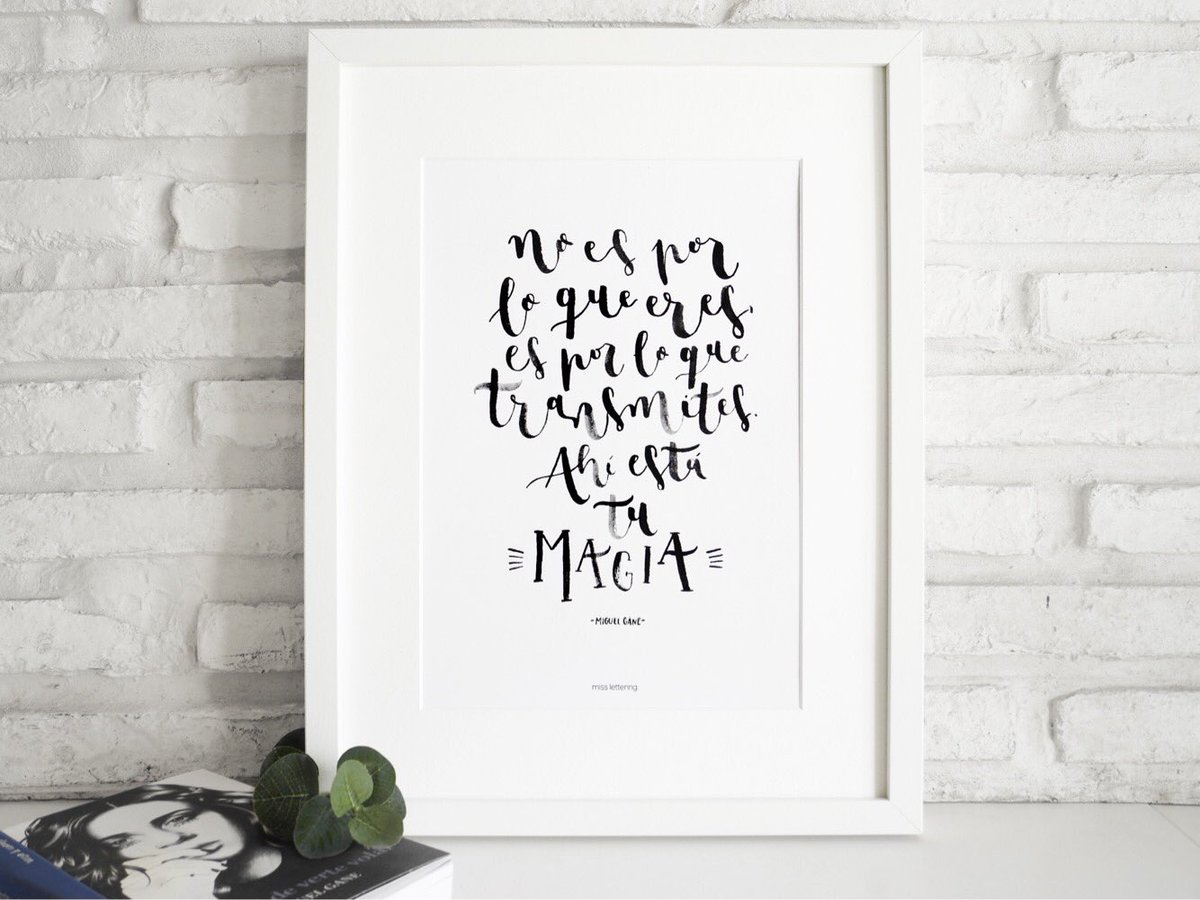 No es por
lo que eres,
es por lo que
transmites.
Ahí está
tu
MAGIA
-MIGUEL GANE-
miss lettering
de verte volar
EL GANE